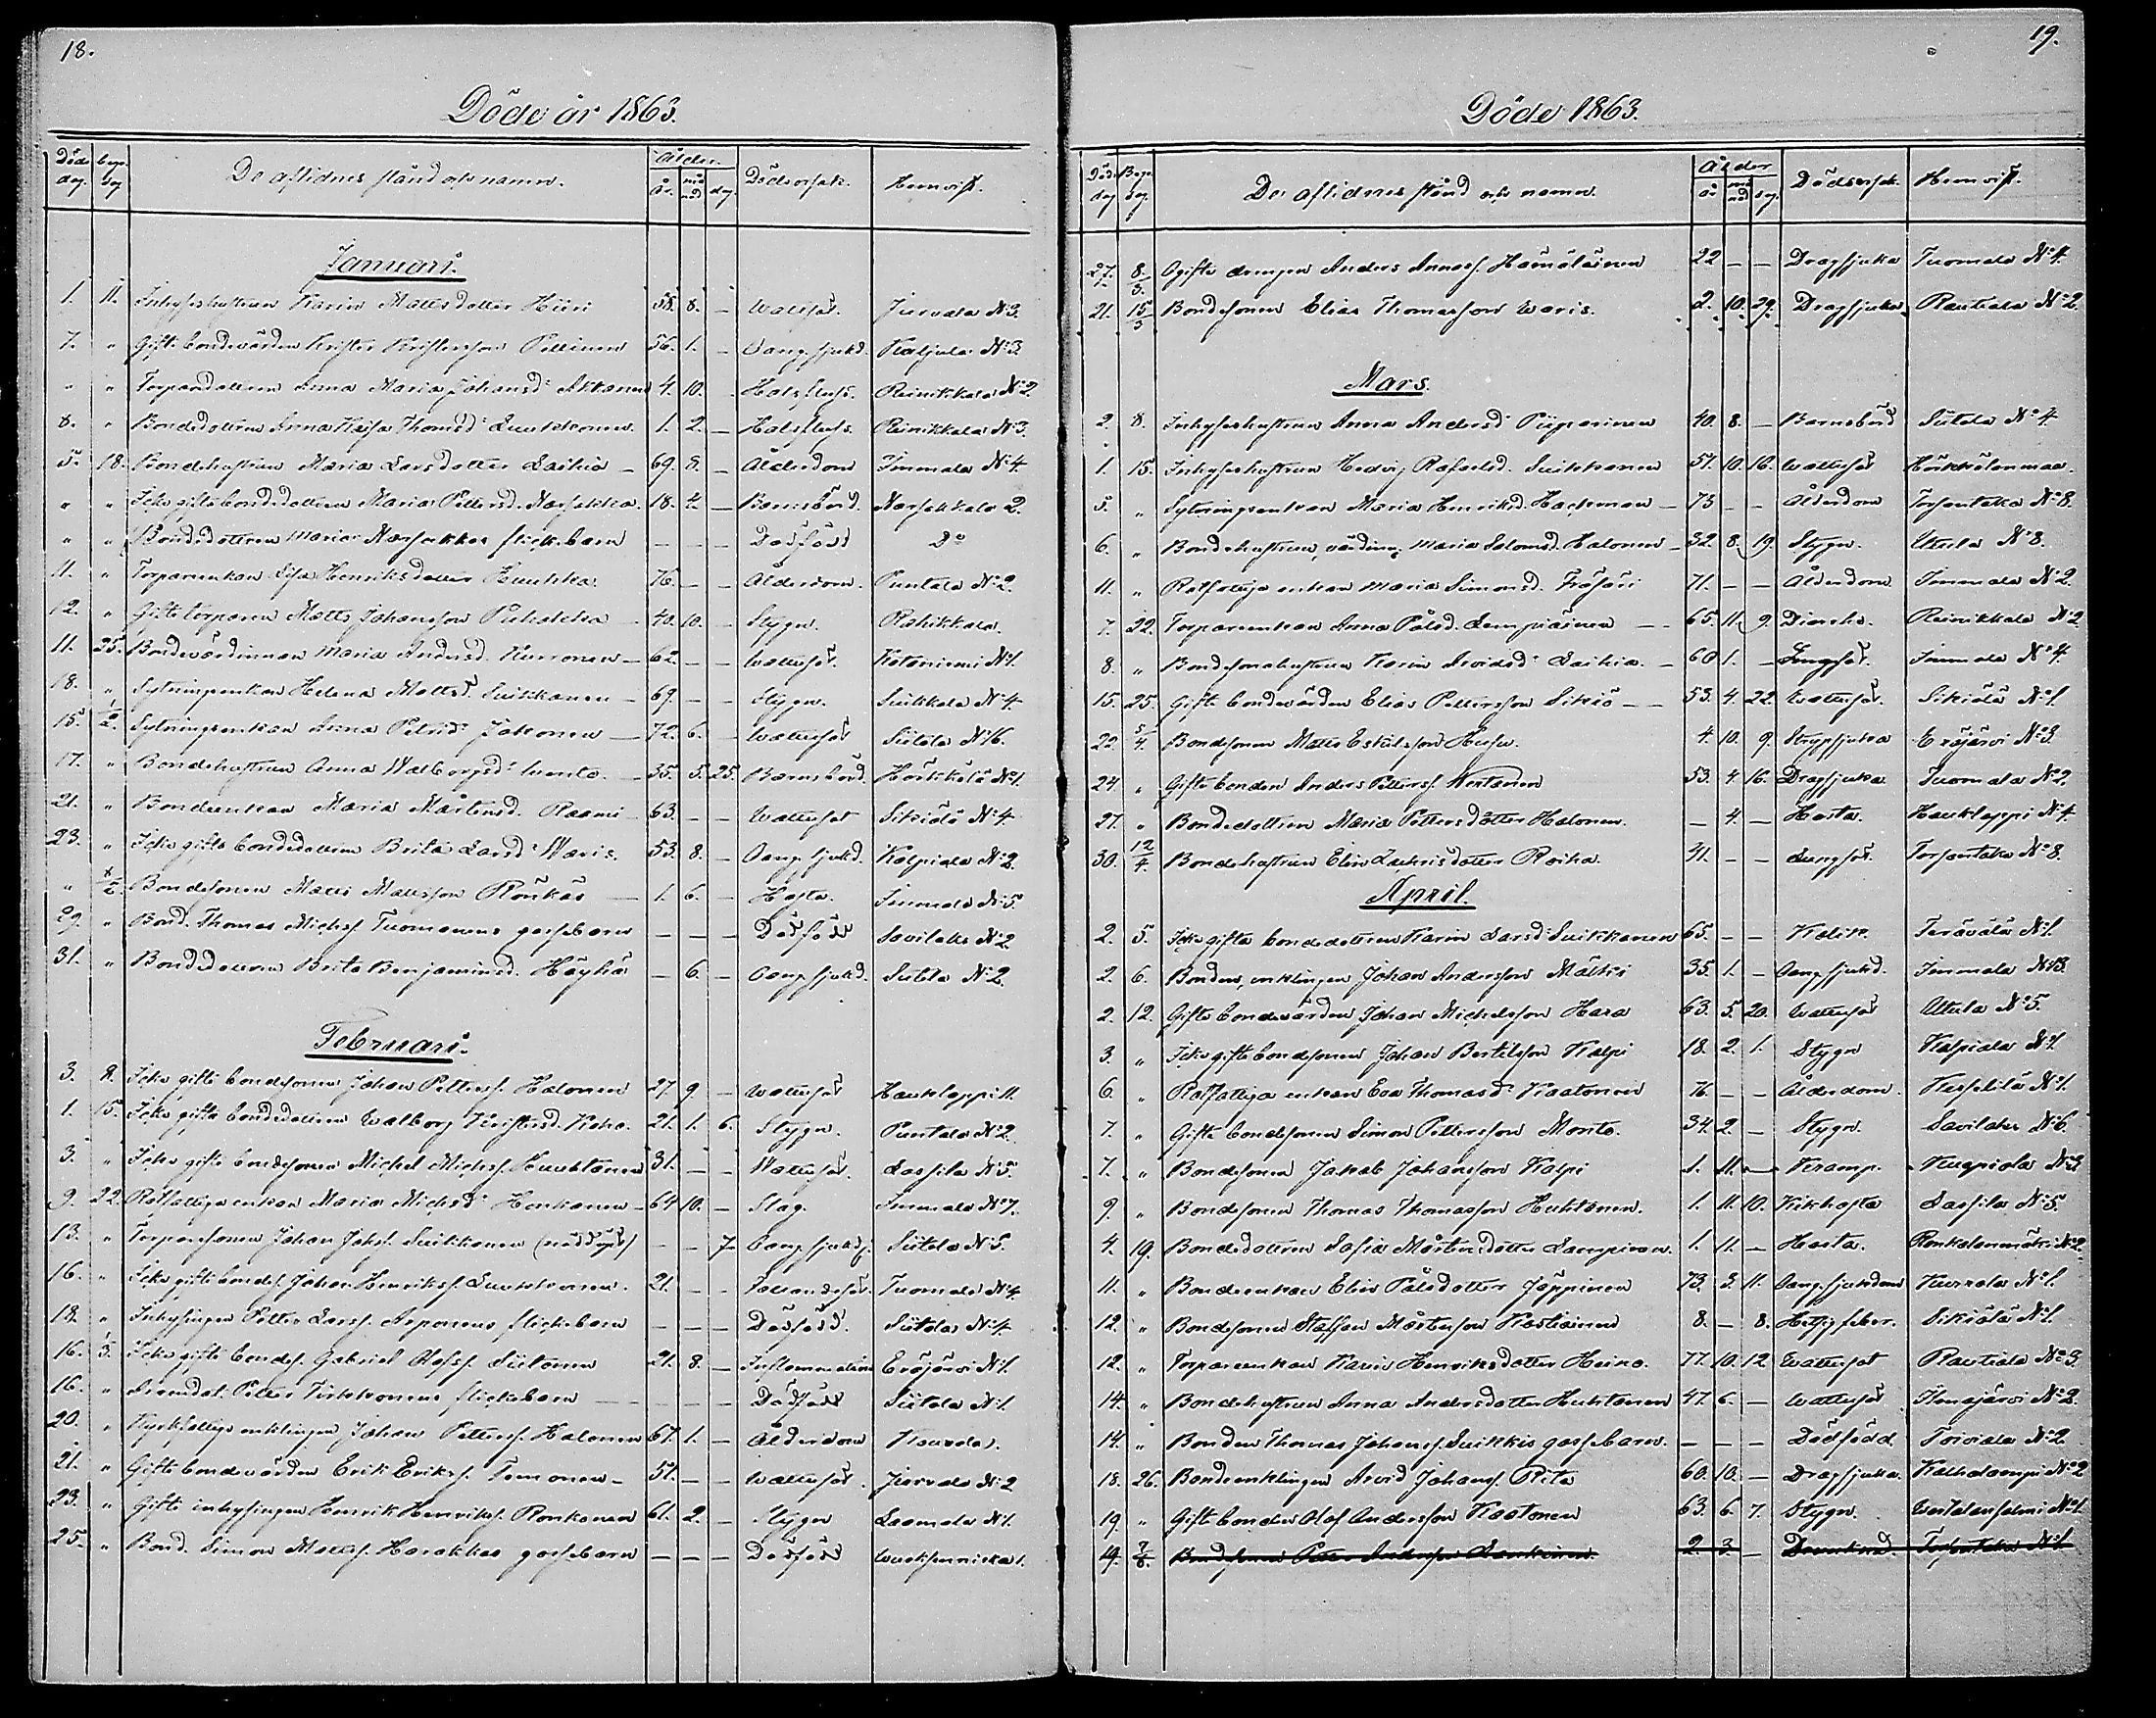 18.
Döde år 1863.
Döds dag. begr. dag De aflidnes stånd och namn. Ålder. år. månad dag. Dödsorsak. Hemvist.
Januari.
1. 11. Inhyseshustrun Karin Mattsdotter Hiiri 58. 8. — Wattsot. Jurvala No 3.
7. " Gift bondevärden Krister Kristersson Pellinen 56. 1. — Oang. sjukd. Kaljula No 3.
" " Torparedottren Anna Maria Johansd: 4. 10. Halsfluss. Reinikkala No 2.
8. " Bondedottren Anna Kaisa Thomsd: Luukkonen. 1. 2. — Halsfluss. Reinikkala No 3.
5. 18. Bondehustrun Maria Larsdotter Laihia — 69. 8. — Ålderdom Immala No 4.
" " Icke gifta bondedottren Maria Pettersd. Narsakka. 18. 4 — Barnsbörd. Narsakkala 2.
" " Bondedottren Maria Narsakkas flickebarn — — — Dödfödd Do
11. " Torpareenkan Lisa Henriksdotter Huukka. 76. — — Ålderdom. Puntala No 2.
12. " Gifte torparen Matts Johansson Puhakka — 40. 10. — Stygn. Rahikkala.
11. 25. Bondevärdinnan Maria Andersd. Kurronen — 62. — — Wattusot. Kotaniemi No 1.
18. " Sytningsenkan Helena Mattsd. Suikkanen — 69. — — Stygn. Suikkala No 4
15. 1/2. Sytningsenkan Anna Petrsd: Jakonen — 72. 6. — Wattusot Siitola No 16.
17. " Bondehustrun Anna Walborgsd: — 35. 5. 25. Barnsbörd. Härskiälä No 1.
21. " Bondeenkan Maria Mårtensd. Raami — 63. — — Wattusot Sikiölä No 4.
23. " Icke gifta bondedottren Brita Larsd: Waris. 53. 8. — Oang. sjukd. Kalpiala No 2.
" Bondesonen Matts Mattsson Rönkäs — 1. 6. — Hosta. Immala No 5.
29. " Bond. Thomas Michsf. Tuomanens gossebarn — — — Dödfödd Savilaks No 2
31. " Bondedottren Brita Benjaminsd. Häyhä — 6. — Oang. sjukd. Siitola No 2.
Februari.
3. 8. Icke gifte bondesonen Johan Petterss. Halonen 27. 9. — Wattusot Hauklappi 11.
1. 15. Icke gifta bondedottren Walborg Kristersd. Koho. 21. 1. 6. Stygn. Puntala No 2.
3. " Icke gifte bondesonen Michel Michsf. Huuhtanen 31. — — Wattusot. Lassila No 5.
9. 22. Rotfattiga enkan Maria Michsd: Honkanen — 64 10. — Slag. Immala No 7.
13. " Torparesonen Johan Johsf. Suikkanen (nöddöpt) — — 7. Oang. sjukd. Siitola No 5.
16. " Icke gifte bondes. Johan Henriksf. Luukkonen. 21. — — Fallandesot. Tuomala No 4
18. " Inhysingen Petter Larsf. Asponens flickebarn — — — Dödfödd. Siitola No 4
16. Icke gifte bondes. Gabriel Olofsf. Siitonen 21. 8. — Inflammation Eräjärvi No 1.
16. " Petter Tirkkonens flickebarn — — — Dödfödd Siitola No 1.
20. " Kyrkfattige enklingen Johan Petterss. Halonen 67. 1. — Ålderdom Kaurola.
21. " Gifte bondevärden Erik Eriksf. Temonen — 51. — — Wattusot. Jurvala No 2
23. " Gifte inhysingen Henrik Henriksf. Ronkanen 61. 2. — Stygn Laamala No 1.
25. " Bond. Simon Mattsf. Harakkas gossebarn — — — Dödfödd Wuoksenniska 1.
19.
Döde 1863.
Döds dag Begr. dag. De aflidnes stånd och namn. Ålder år månad dag. Dödsorsak. Hemvist.
27. 8/3. Ogifte drängen Anders Annass. Hämäläinen 22 — — Dragsjuka Tuomala No 4.
21. 15/3 Bondesonen Elias Thomasson Waris. 2. 10. 29. Dragsjuka Rautiala No 2.
Mars.
2. 8. Inhyseshustrun Anna Andersd: Piiparinen 40. 8. — Barnsbörd Siitola No 4
1. 15. Inhyseshustrun Hedvig Rafaelsd. Suikkanen 51. 10. 16. Wattusot
5. " Sytningsenkan Maria Henriksd. Hackman — 73 — — Ålderdom Torsantaka No 8.
6. " Bondehustrun, värdinn. Maria Salomsd. Halonen — 32. 8. 19. Stygn. Uttula No 8.
11. " Rotfattiga enkan Maria Simonsd. Träsäri 71. — — Ålderdom Immala No 2.
7. 22. Torpareenkan Anna Pålsd. Lempiäinen — — 65. 11. 9. Diarrhe. Reinikkala No 2
8. " Bondesonahustrun Karin Arvidsd: Laihia. — 60 1. — Lungsot. Immala No 4.
15. 25. Gifte bondevärden Elias Pettersson Sikiö — — 53. 4. 22. Wattusot. Sikiölä No 1.
22 5/4. Bondesonen Matts Eskilsson Husu. 4. 10. 9. Strypsjuka Eräjärvi No 3.
24 " Gifte bonden Anders Petterss. Wentonen 53. 4 16. Dragsjuka Tuomala No 2.
27. " Bondedottren Maria Pettersdotter Halonen. — 4. — Hosta. Hauklappi No 4
30. 12/4. Bondehustrun Elin Zachrisdotter Roiha. 31. — — Lungsot. Torsantaka No 8.
April.
2. 5. Icke gifta bondedottren Karin Larsd: Suikkanen 65. — — Kolik. Terävälä No 1.
2. 6. Bonden, enklingen Johan Andersson Mälkki 35. 1. — Oang. sjukd. Immala No 13.
2. 12. Gifte bondevärden Johan Michelsson Hara 63. 5. 20. Wattusot Uttula No 5.
3. " Icke gifte bondesonen Johan Bertilsson Kalpi 18. 2. 1. Stygn Kalpiala No 1.
6. " Rotfattiga enkan Eva Thomasd: Kaatonen 76. — — Ålderdom. Kesselilä No 1.
7. " Gifte bondesonen Simon Pettersson Monto. 34. 2. — Stygn. Savilaks No 6.
7. " Bondesonen Jakob Johansson Kalpi 1. 11. — Kramp. No 3
9. " Bondesonen Thomas Thomasson Huhtanen. 1. 11. 10. Kikhosta Lassila No 5.
4. 19. Bondedottren Sofia Mårtensdotter Lampinen. 1. 11. — Hosta. Ronkalanmäki No 2
11. " Bondeenkan Elin Pålsdotter Jäppinen 73. 3. 11. Oang. sjukdom Kurrola No 1.
12. " Bondesonen Staffan Mårtensson Kostiainen 8. — 8. Hetsig feber. Sikiölä No 1.
12. " Torpareenkan Karin Henriksdotter Heino. 77. 10. 12 Wattusot Rautiala No 3.
14. " Bondehustrun Anna Andersdotter Huhtanen 47. 6. — Wattusot Ilmajärvi No 2.
14. " Bonden Thomas Johanss. Suikkis gossebarn. — — — Dödfödd. Toiviala No 2
18. 26. Bondeenklingen Arvid Johanss. Rita 60. 10. — Dragsjuka. Kalkolampi No 2
19. " Gifte bonden Olof Andersson Kaatonen 63. 6. 7. Stygn. No 1.
19. Bondesonen Anderson 2. 3. — Torsantaka No 1.